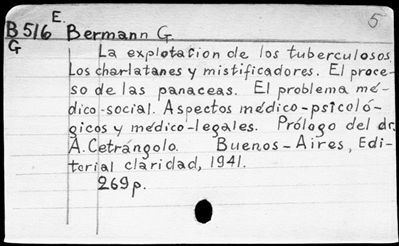 5
E.
B516 Bermann G.
G
La explotación de los tuberculosos.
Los charlatanes y mistificadores. El proce-
so de las panaceas. El problema mé-
dico-social. Aspectos médico-psicoló-
gicos y médico-legales. Prólogo del dr.
A. Cetrángolo. Buenos-Aires, Edi-
torial claridad, 1941.
269 p.